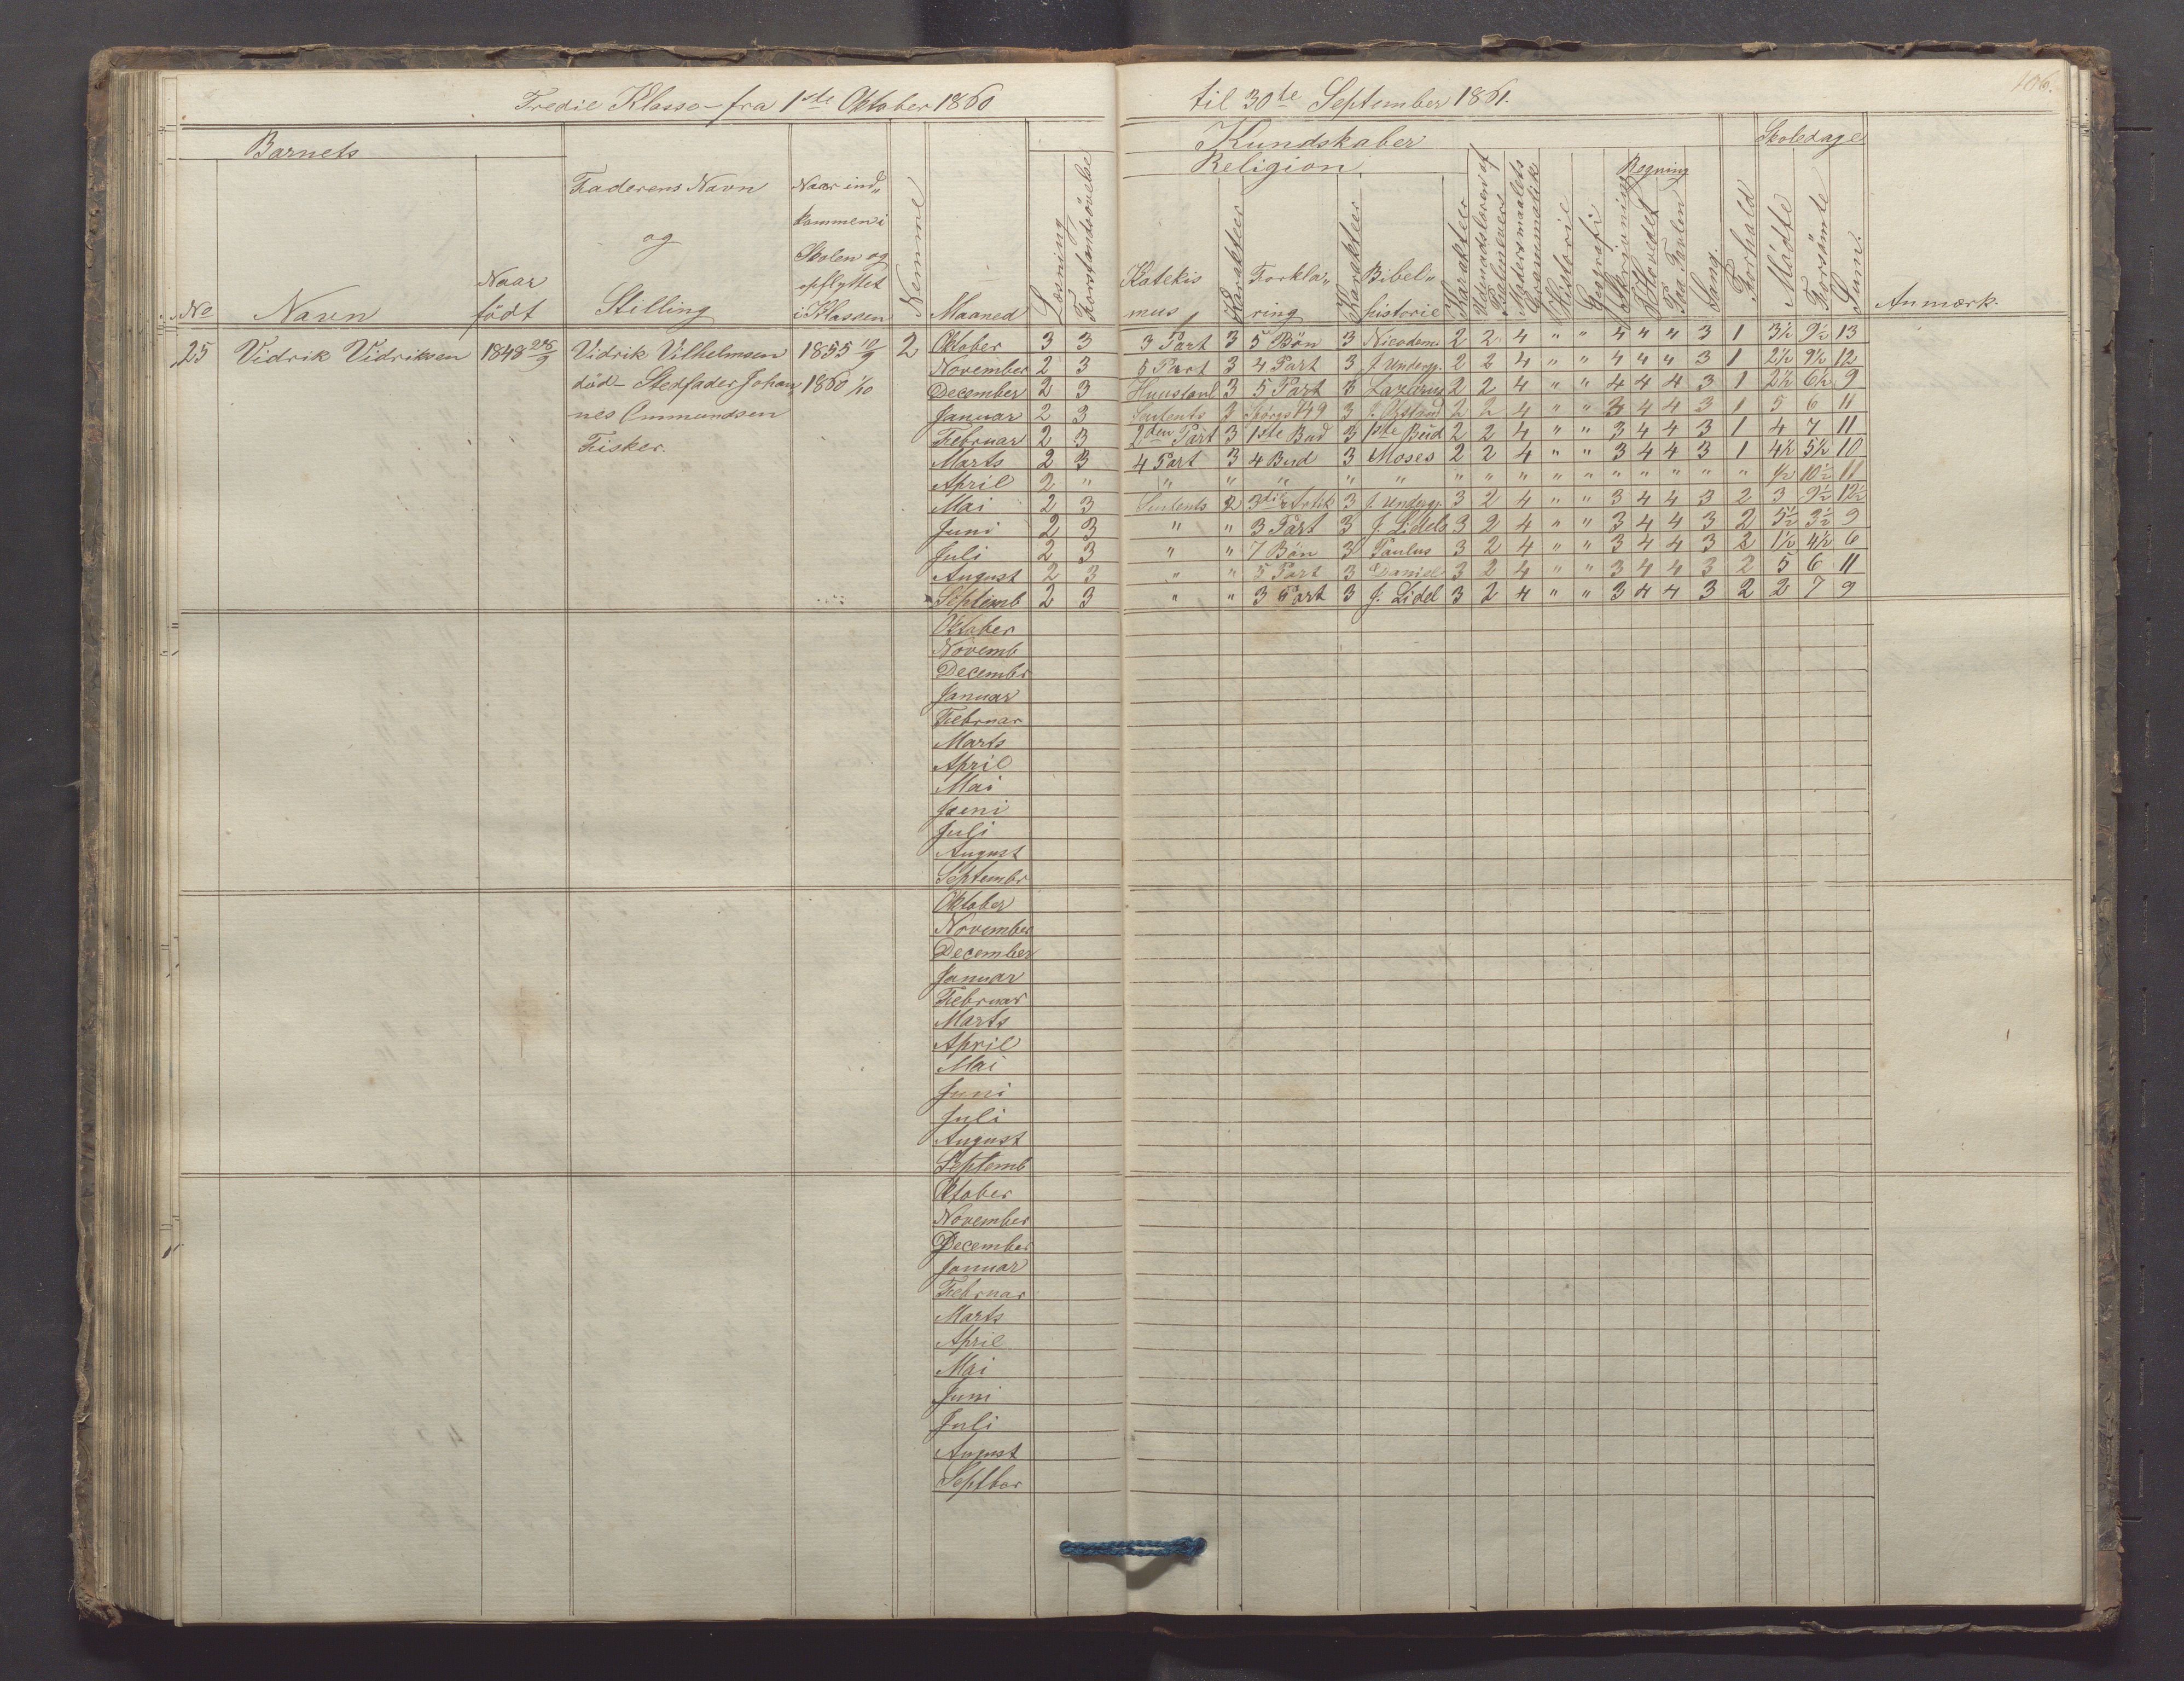 Tredie Klasse fra 1ste Oktober 1860 til 30te September 1861.
106.
Barnets
Kundskaber
Skoledage
Religion.
Regning
No
Navn
Naar født
Faderens Navn og Stilling
Naar ind„ kommen i Skolen og opflyttet i Klassen
Nemme
Maaned
Læsning
Forstandsøvelse
Katekis mus
Karakteer
Forkla„ ring
Karakteer
Bibel„ historie
Karakteer
Udenadslæren af Psalmevers
Modersmaalets Grammatik
Historie
Geografi
Skrivning
I Hovedet
Paa Tavlen
Sang.
Forhold
Mødte
Forsømte
Sum.
Anmærk.
25 Vidrik Vidriksen 1848 Vidrik Vilhelmsen 1855 2 Oktober 3 3 3 Part 3 5 Bøn 3 Nicodem 2 2 4 „ „ 4 4 4 3 1 3½ 9½ 13
November 2 3 5 Part 3 4 Part 3 J. Underg. 2 2 4 „ „ 4 4 4 3 1 2½ 9½ 12
død – Stefader Johan„ 1860 1/10 December 2 3 Huustavl 3 5 Part 3 Lazarus 2 2 4 „ „ 4 4 4 3 1 2½ 6½ 9
nes Ommundsen Januar 2 3 3 149 3 2 2 4 „ „ 3 4 4 3 1 5 6 11
Fisker. Februar 2 3 2den Part 3 1ste Bud 3 1ste Bud 2 2 4 „ „ 3 4 4 3 1 4 7 11
Marts 2 3 4 Part 3 4 Bud 3 Moses 2 2 4 „ „ 3 4 4 3 1 4½ 5½ 10
April 2 „ „ „ „ „ „ „ „ „ „ „ „ „ „ „ „ ½ 10½ 11
Mai 2 3 2 3die Artik 3 J. Underg. 3 2 4 „ „ 3 4 4 3 2 3 9½ 12½
Juni 2 3 „ „ 3 Part 3 J. Lidels 3 2 4 „ „ 3 4 4 3 2 5½ 3½ 9
Juli 2 3 „ „ 7 Bøn 3 Paulus 3 2 4 „ „ 3 4 4 3 2 1½ 4½ 6
August 2 3 „ „ 5 Part 3 Daniel 3 2 4 „ „ 3 4 4 3 2 5 6 11
Septemb 2 3 „ „ 3 Part 3 J. Lidel 3 2 4 „ „ 3 4 4 3 2 2 7 9
Oktober
Novemb
Decembr
Januar
Februar
Marts
April
Mai
Juni
Juli
August
Septembr
Oktober
November
December
Januar
Februar
Marts
April
Mai
Juni
Juli
August
Septemb
Oktober
November
December
Januar
Februar
Marts
April
Mai
Juni
Juli
August
Septbor